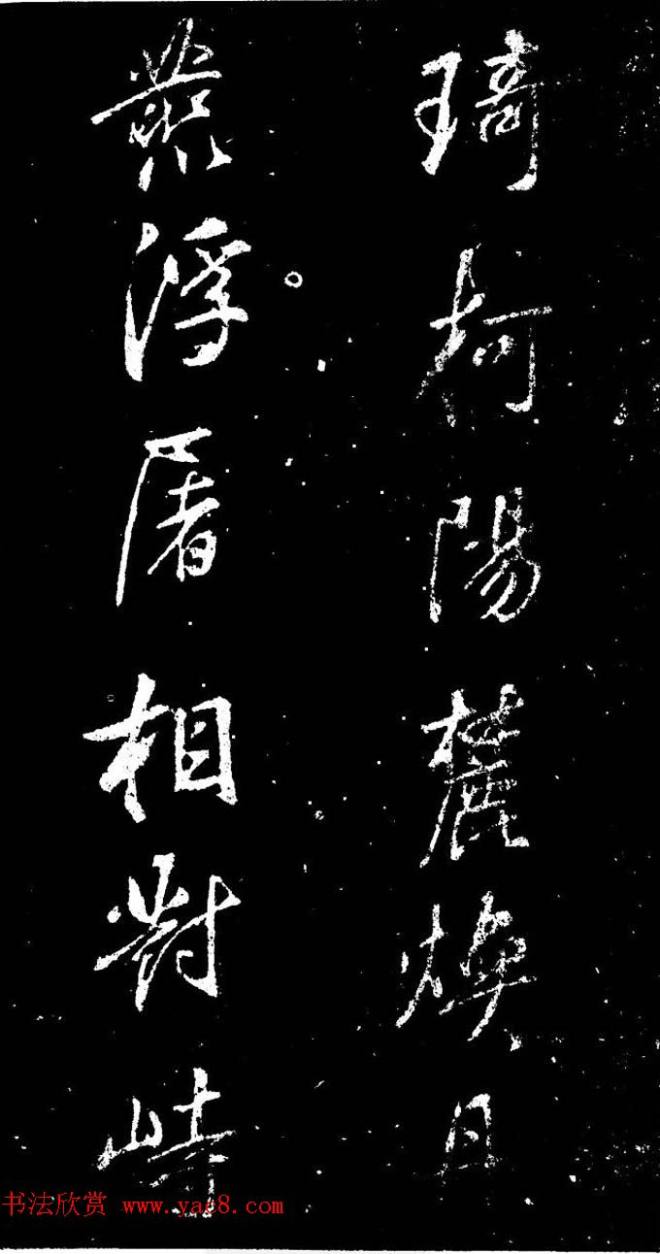 琦椅陽麓煥丹
叢浮屠相對峙
书法欣赏 www.yac8.com